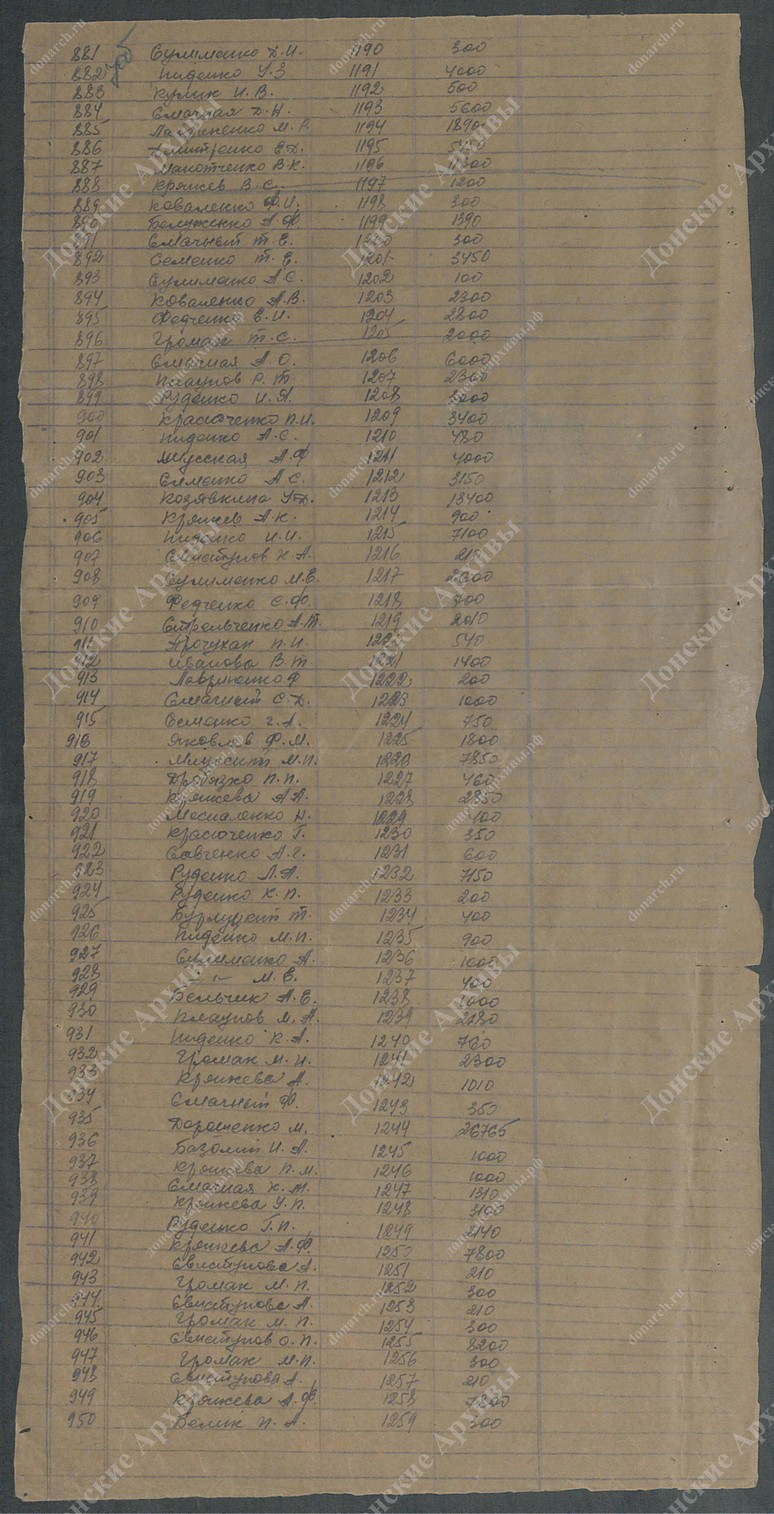 881 Сулименко Д.И. 1190 300
882 Пиденко У.З 1191 4000
883 Кулик И.В. 1192 500
884 Смачная Д.Н. 1193 5600
885 М.В 1194 1890
886 Дмитренко Е.Д. 1195
887 В.К. 1196
888 Кряжев В.С. 1197 1200
889 Коваленко Ф.И. 1198 300
890 А.Ф. 1199 1390
891 Смачный Т.Е. 300
892 Семенко Т.Е. 1201 3450
893 Сулименко А.С. 1202 100
894 Коваленко А.В. 1203 2300
895 Федченко Е.И. 1204 2800
896 Громак Т.С. 1205 2000
897 Смачная А.О. 1206 6000
898 Плаунов Р.Т 1207 2300
899 Руденко И.Я. 1208 3000
900 Красюченко П.И. 1209 3400
901 Пиденко А.С. 1210 480
902 А.Ф 1211 4000
903 Семенко А.С. 1212 3150
904 Козявкина У.Д. 1213 13400
905 Кряжев А.К. 1214 900
906 Пиденко И.И. 1215 7100
907 Свистунов К.А. 1216 210
908 Сулименко М.Е. 1217
909 Федченко С.Ф. 1218 700
910 Стрельченко А.Т. 1219 2010
911 П.И. 540
912 Иванова В.Т. 1221 1400
913 Лавриненко Ф 1222 200
914 Смачный С.Д. 1223 1000
915 Семенко Г.А. 1224 750
916 Яковлев Ф.М. 1225 1800
917 М.П. 1226 7850
918 Дробязко П.П. 1227 460
919 Кряжева А.А. 1228 2850
920 Москаленко Н. 1229 100
921 Красюченко Г. 1230 350
922 Савченко А.Г. 1231 600
923 Руденко Л.А. 1232 7150
924 Руденко К.П. 1233 200
925 Бурлуцкий Т. 1234 400
926 Пиденко М.П. 1235 900
927 Сулименко А. 1236 1000
928 - " - М.Е. 1237 400
929 Бельчик А.Е. 1238 1000
930 Плаунов М.А. 1239 2180
931 Пиденко К.А. 1240 760
932 Громак М.Н. 1241 2300
933 Кряжева А. 1242 1010
934 Смачный Ф. 1243 350
935 Дорошенко М. 1244 26765
936 И.А. 1245 1000
937 Кряжева П.М. 1246 1000
938 Смачная К.Т. 1247 1310
939 Кряжева У.П. 1248 3100
940 Руденко Г.П. 1249 2140
941 Кряжева А.Ф. 1250 7800
942 Свистунова А. 1251 210
943 Громак М.П. 1252 300
944 Свистунова А. 1253 210
945 Громак М.П. 1254 300
946 Свистунов О.П. 1255 8200
947 Громак М.П. 1256 300
948 Свистунова А. 1257 210
949 Кряжева А.Ф. 1258 7800
950 Белик П.А. 1259 300
Донские Архивы
donarch.ru